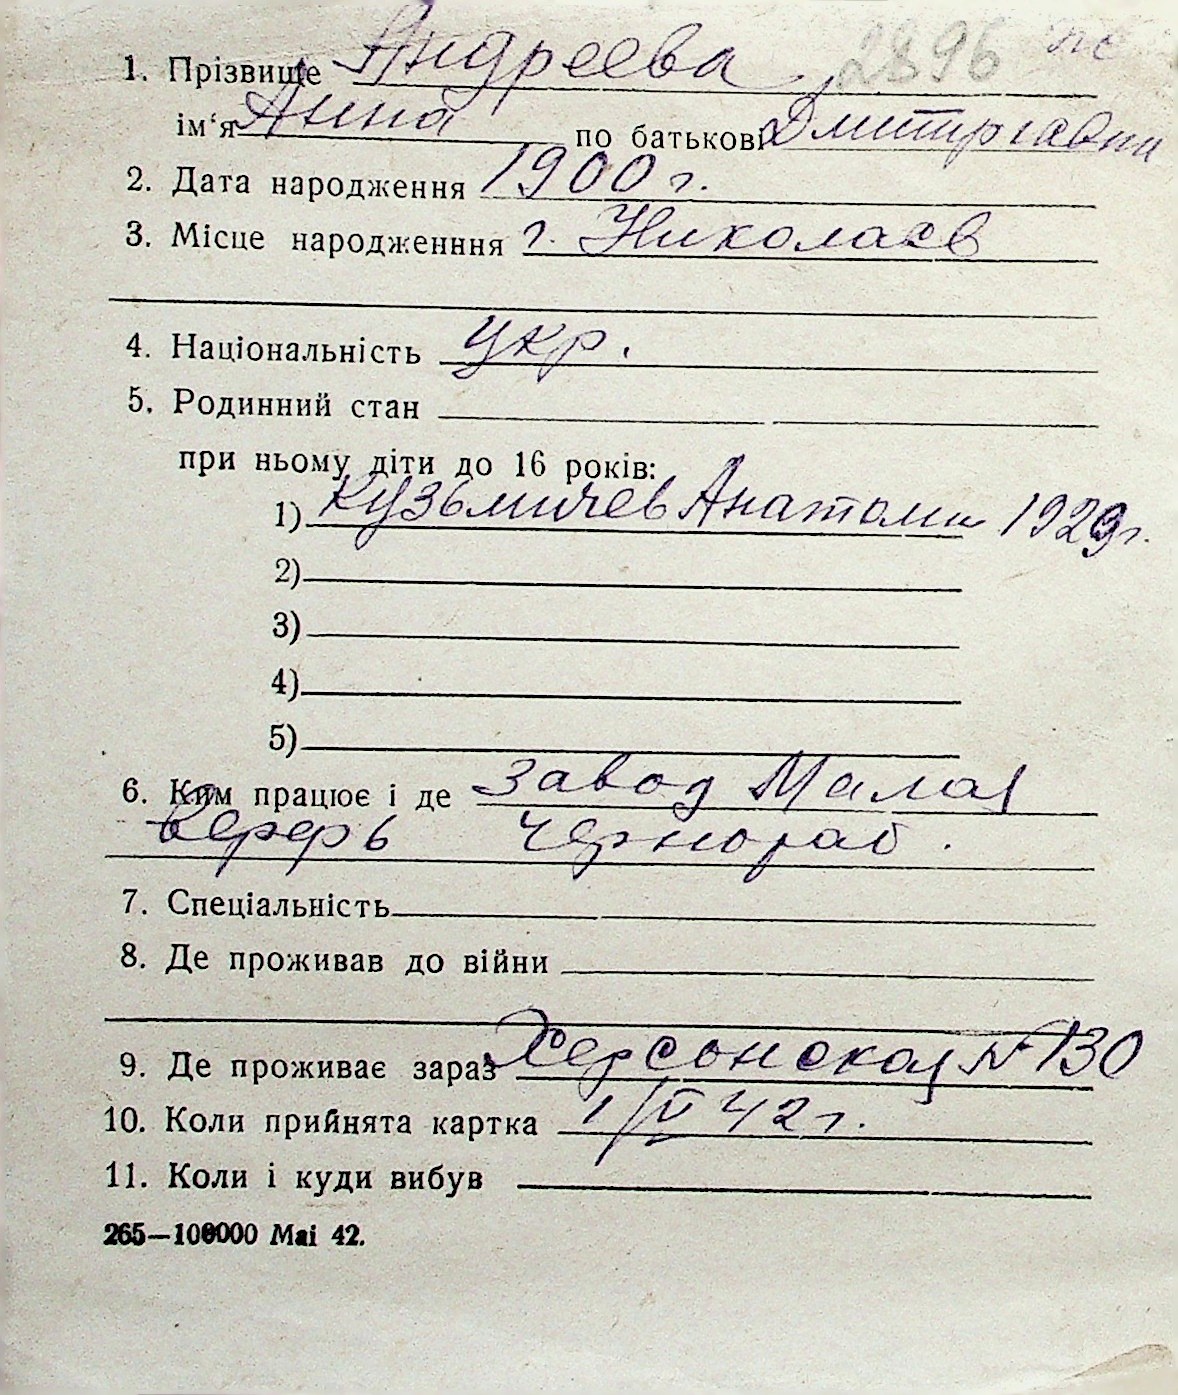 2896 пс
1. Прізвище Андреева
ім‘я Анна по батькові Дмитриевна
2. Дата народження 1900 г.
3. Місце народженння г. Николаев
4. Національність укр.
5. Родинний стан
при ньому діти до 16 років:
1) Кузьмичев Анатоли 1929 г.
2)
3)
4)
5)
6. Ким працює і де завод Малая
верфь чернораб.
7. Спеціальність
8. Де проживав до війни
9. Де проживає зараз Херсонская № 130
10. Коли прийнята картка 1/VI 42 г.
11. Коли і куди вибув
265—100000 Mai 42.